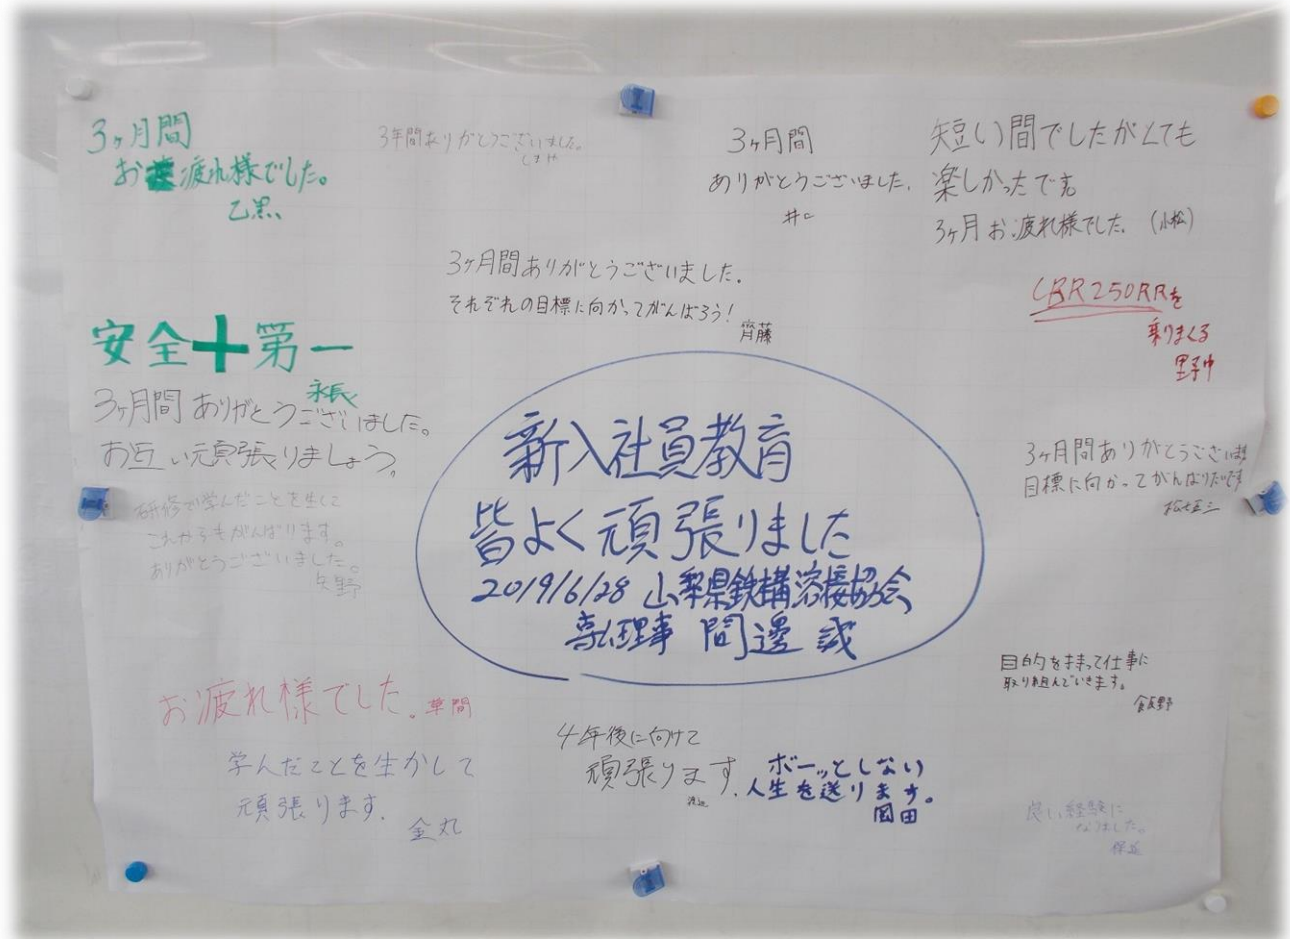 3ヶ月間
お疲れ様でした。
乙黒
3年間ありがとうございました。
3ヶ月間
ありがとうございました.
井口
短い間でしたがとても
楽しかったです。
3ヶ月お疲れ様でした。(小松)
3ヶ月間ありがとうございました.
それぞれの目標に向かってがんばろう!
齊藤
CBR250RRを
乗りまくる
野中
安全+第一
永長
3ヶ月間ありがとうございました。
お互い頑張りましょう。
研修で学んだことを生して
これからもがんばります。
ありがとうございました。
矢野
新入社員教育
皆よく頑張りました
2019/6/28 山梨県鉄構溶接協会
専ム理事 間邊 誠
3ヶ月間ありがとうございました
目標に向かってがんばりたいです
目的を持って仕事に
取り組んでいきます。
飯野
お疲れ様でした。草間
学んだことを生かして
頑張ります.
金丸
4年後に向けて
頑張ります.
渡辺
ボーッとしない
人生を送ります。
岡田
良い経験に
なりました。
保延